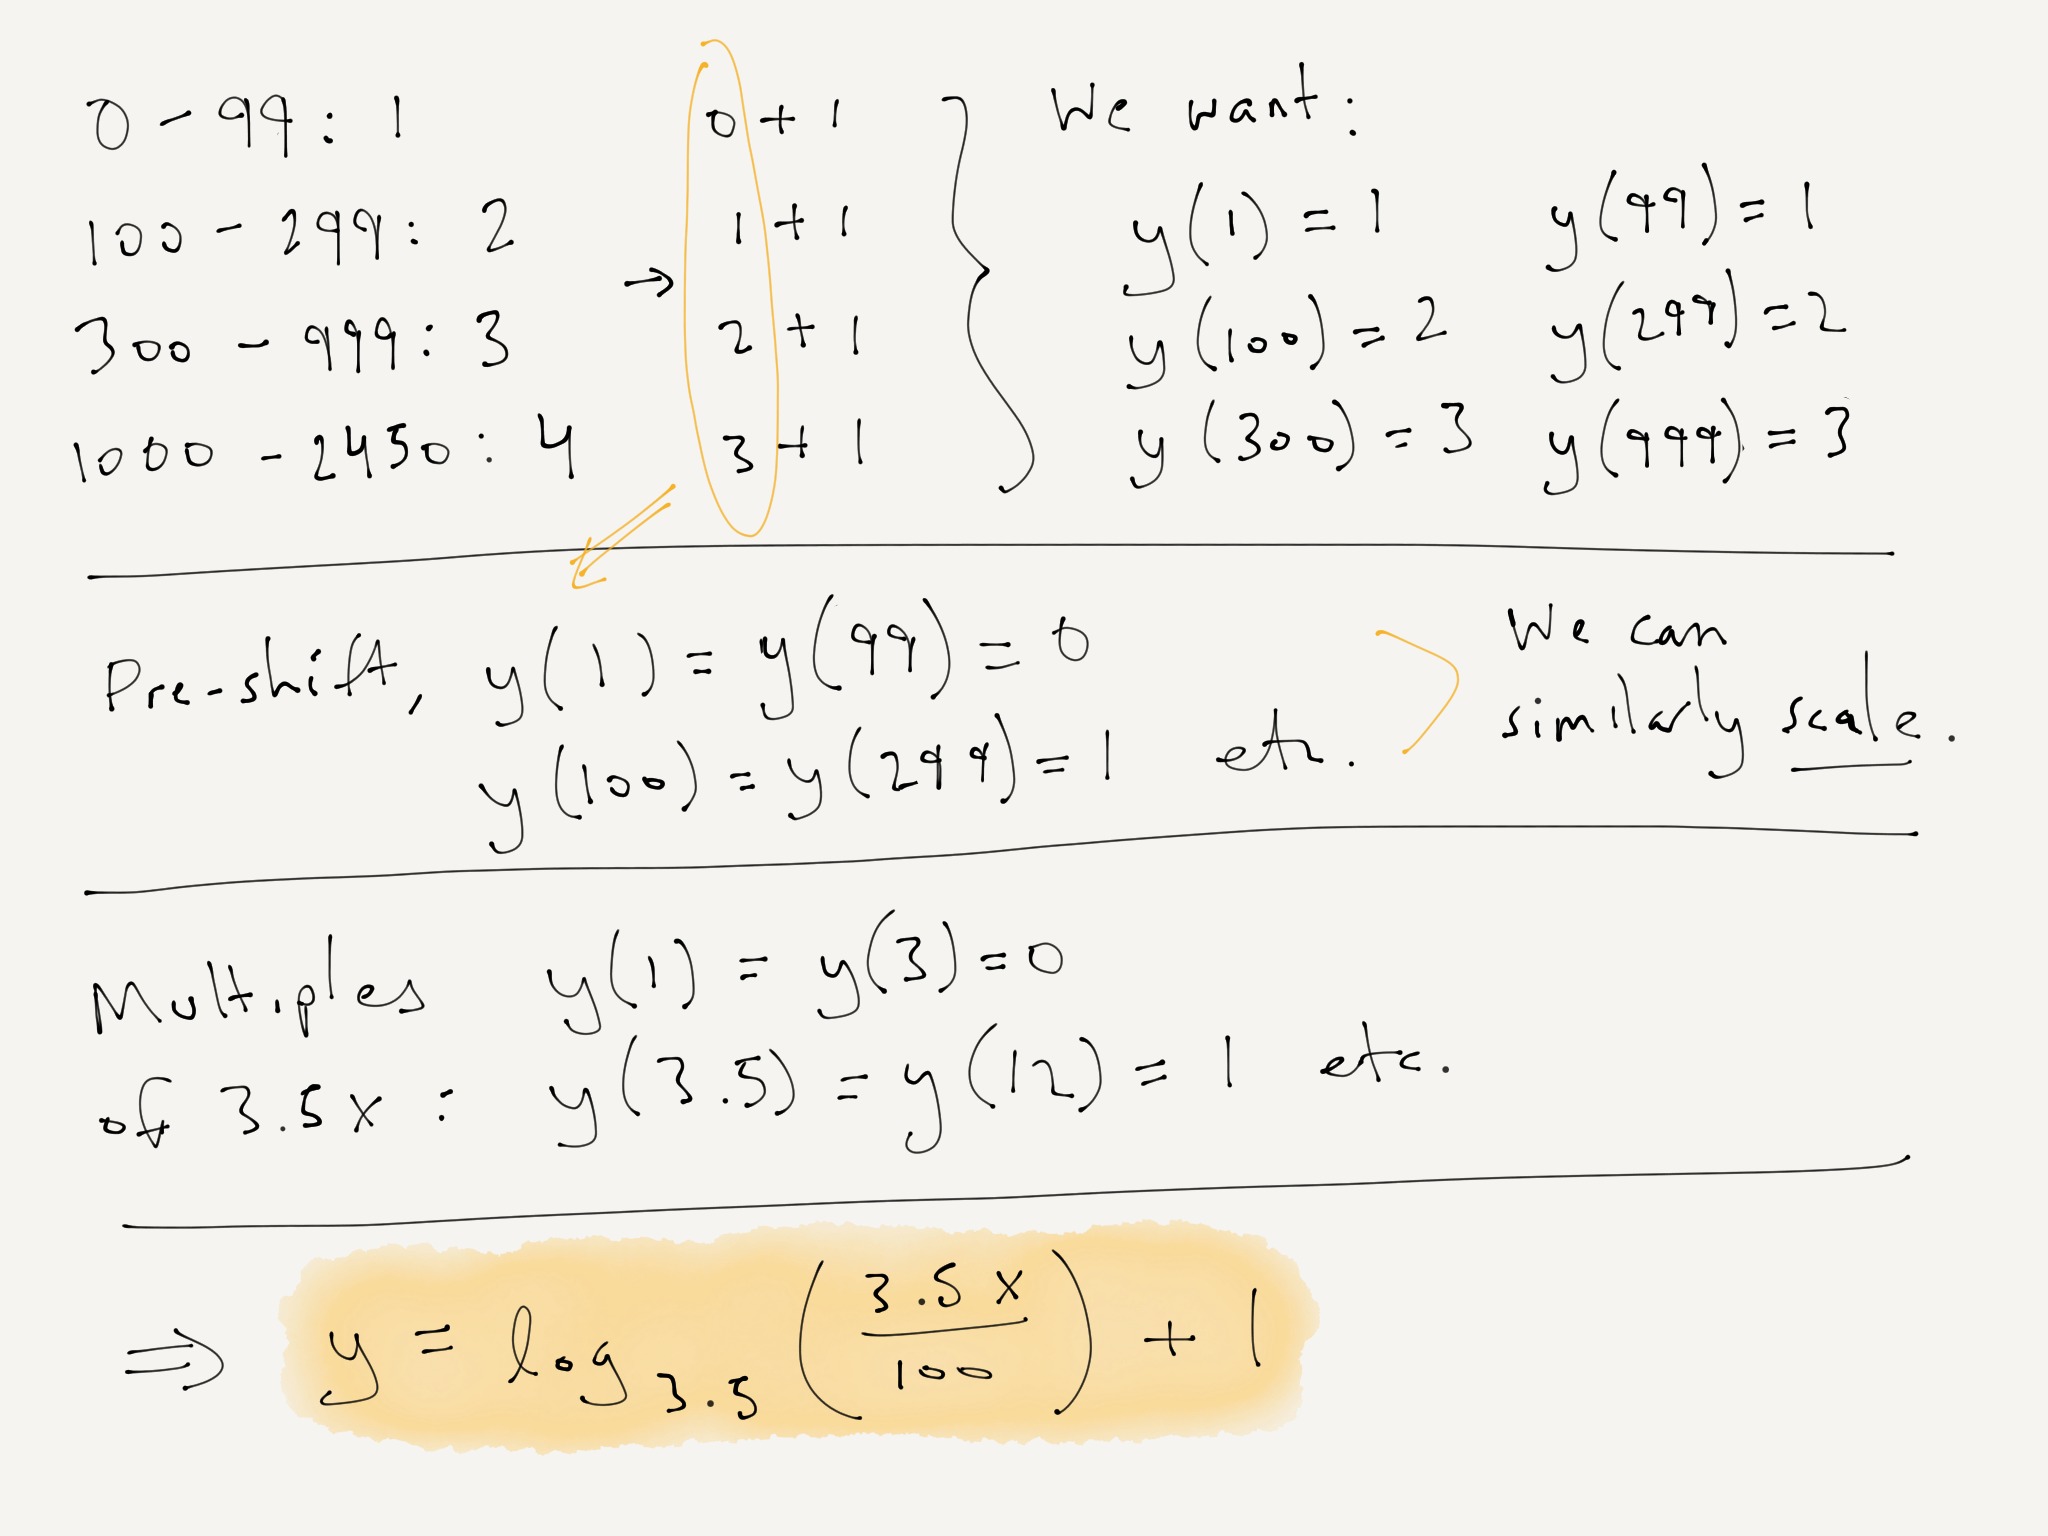 0 - 99 : 1
100 - 299 : 2
300 - 999 : 3
1000 - 2450 : 4
→
0 + 1
1 + 1
2 + 1
3 + 1
We want :
y(1) = 1 y(99) = 1
y(100) = 2 y(299) = 2
y(300) = 3 y(999) = 3
Pre-shift, y(1) = y(99) = 0
y(100) = y(299) = 1 etc.
We can
similarly scale.
Multiples y(1) = y(3) = 0
of 3.5x : y(3.5) = y(12) = 1 etc.
⇒ y = log_3.5 (3.5x / 100) + 1